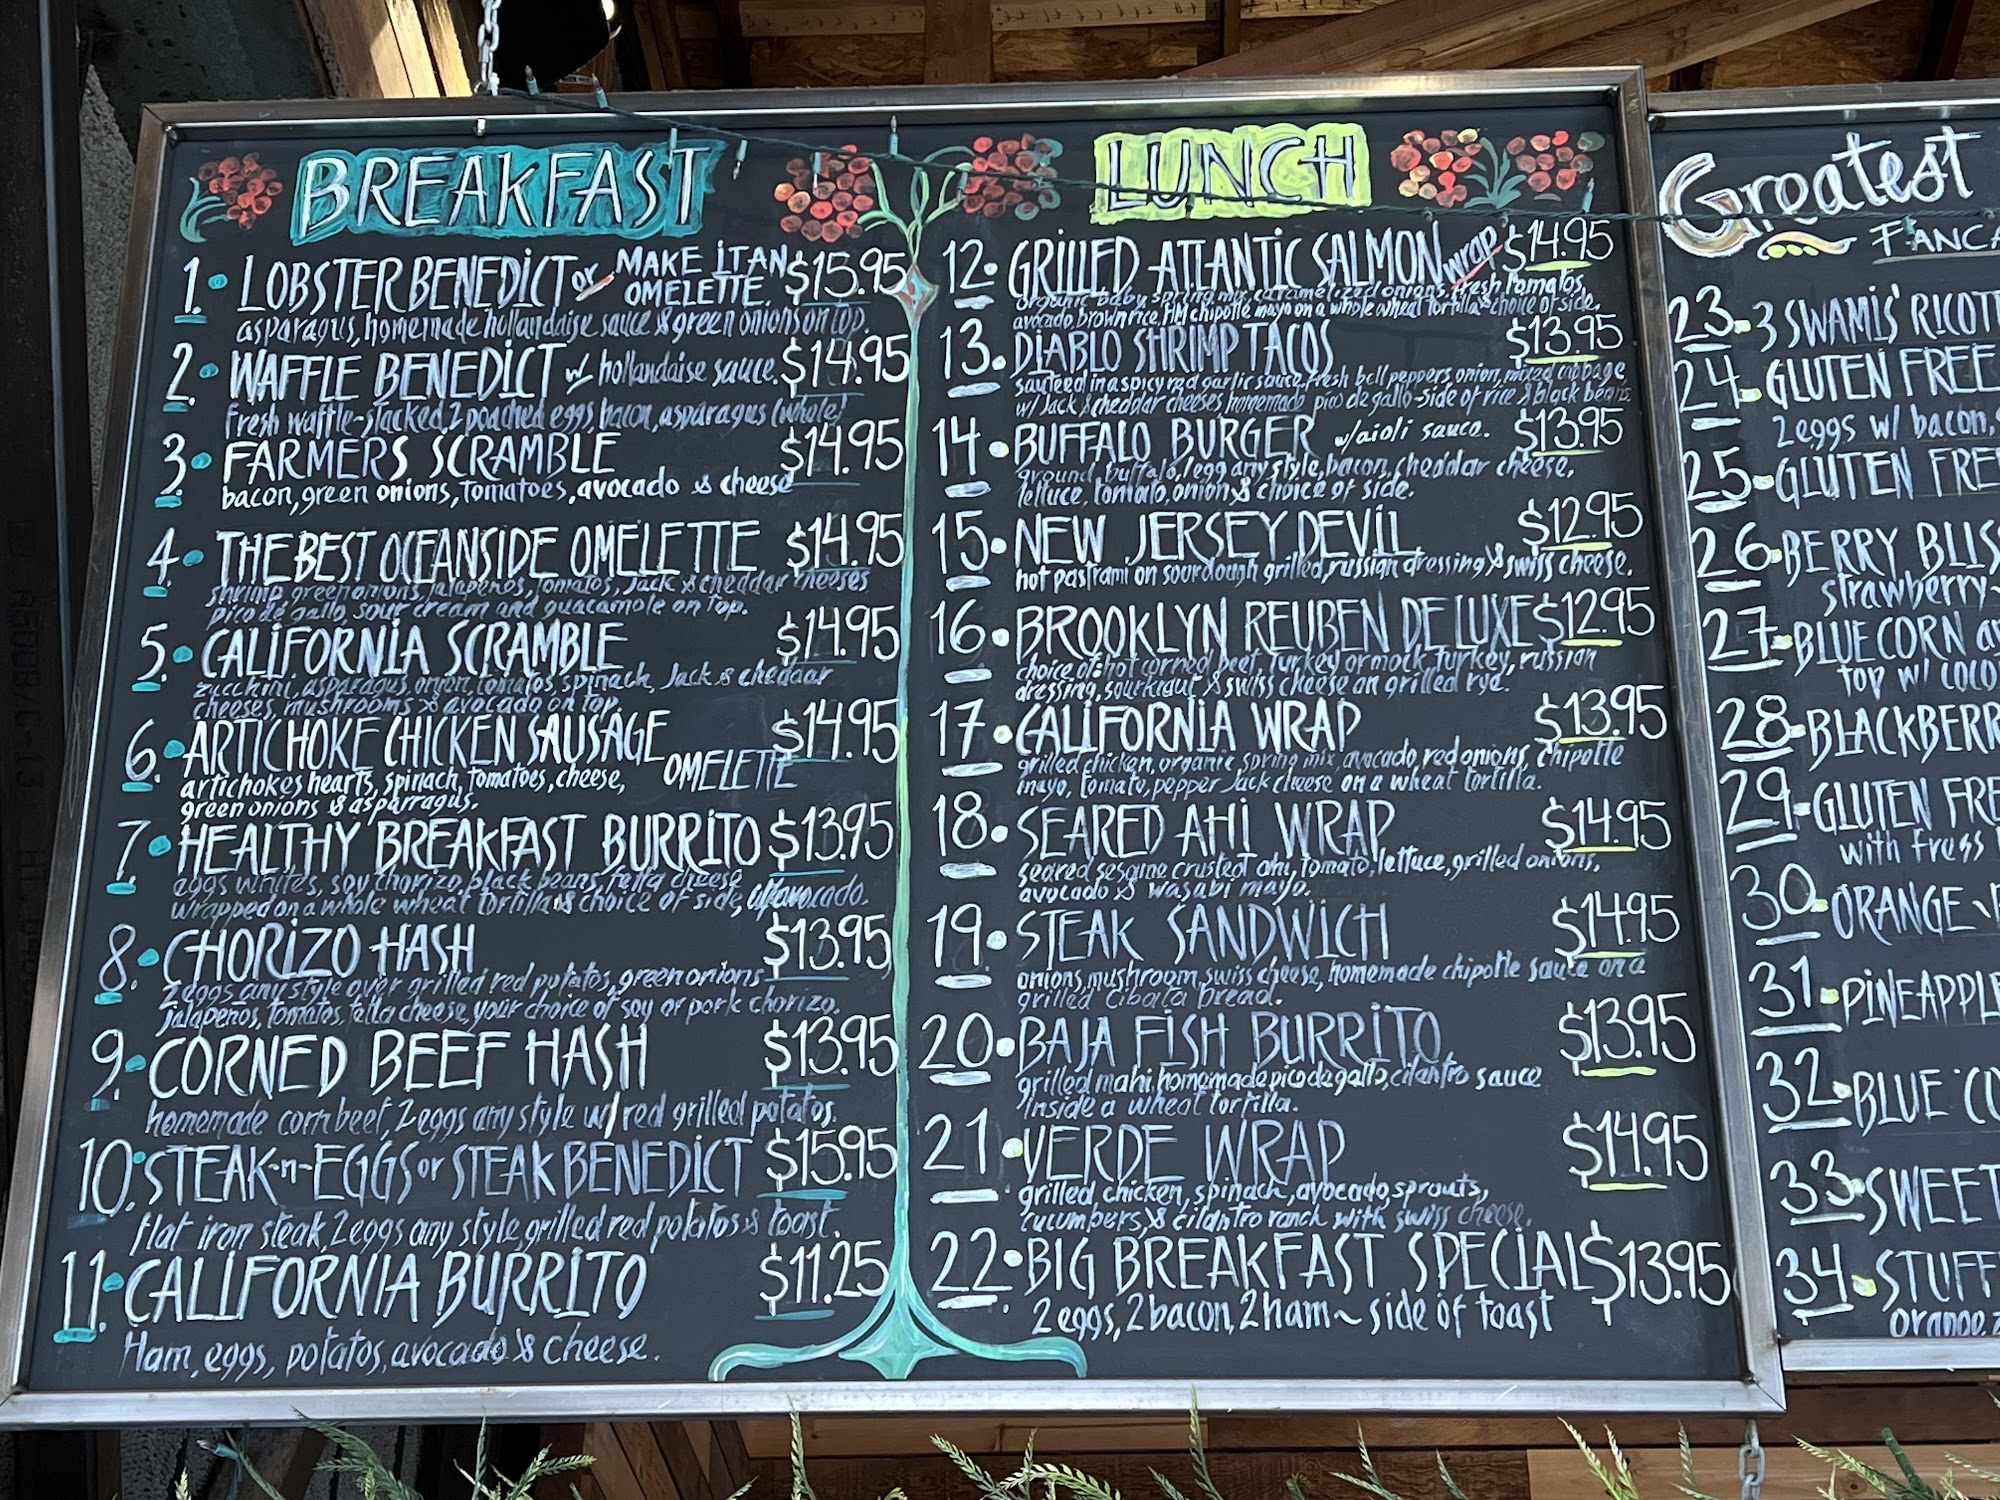 BREAKFAST
1. LOBSTER BENEDICT or MAKE IT AN OMELETTE. $15.95
asparagus, homemade hollandaise sauce & green onions on top.
2. WAFFLE BENEDICT w/ hollandaise sauce. $14.95
fresh waffle-stacked, 2 poached eggs, bacon, asparagus (whole)
3. FARMERS SCRAMBLE $14.95
bacon, green onions, tomatoes, avocado & cheese
4. THE BEST OCEANSIDE OMELETTE $14.95
shrimp, green onions, jalapeños, tomatos, Jack & cheddar cheeses
pico de gallo, sour cream and guacamole on top.
5. CALIFORNIA SCRAMBLE $14.95
zucchini, asparagus, onion, tomatos, spinach, Jack & cheddar
cheeses, mushrooms & avocado on top.
6. ARTICHOKE CHICKEN SAUSAGE OMELETTE $14.95
artichokes hearts, spinach, tomatoes, cheese,
green onions & asparragus.
7. HEALTHY BREAKFAST BURRITO $13.95
eggs whites, soy chorizo, black beans, fetta cheese
wrapped on a whole wheat tortilla & choice of side, w/avocado.
8. CHORIZO HASH $13.95
2 eggs any style over grilled red potatos, green onions
jalapeños, tomatos, fetta cheese, your choice of soy or pork chorizo.
9. CORNED BEEF HASH $13.95
homemade corn beef, 2 eggs any style w/ red grilled potatos.
10. STEAK-n-EGGS or STEAK BENEDICT $15.95
flat iron steak, 2 eggs any style, grilled red potatos & toast.
11. CALIFORNIA BURRITO $11.25
Ham, eggs, potatos, avocado & cheese.
LUNCH
12. GRILLED ATLANTIC SALMON wrap $14.95
organic baby spring mix, caramelized onions, fresh tomatos,
avocado, brown rice, HM chipotle mayo on a whole wheat tortilla-choice of side.
13. DIABLO SHRIMP TACOS $13.95
sauteed in a spicy red garlic sauce, fresh bell peppers, onion, mixed cabbage
w/ Jack & cheddar cheeses homemade pico de gallo-side of rice & black beans.
14. BUFFALO BURGER w/aioli sauce. $13.95
ground buffalo, 1 egg any style, bacon, cheddar cheese,
lettuce, tomato, onion & choice of side.
15. NEW JERSEY DEVIL $12.95
hot pastrami on sourdough grilled, russian dressing & swiss cheese.
16. BROOKLYN REUBEN DELUXE $12.95
choice of: hot corned beef, turkey or mock turkey, russian
dressing, sourkraut & swiss cheese on grilled rye.
17. CALIFORNIA WRAP $13.95
grilled chicken, organic spring mix, avocado, red onions, chipotle
mayo, tomato, pepper Jack cheese on a wheat tortilla.
18. SEARED AHI WRAP $14.95
seared sesame crusted ahi, tomato, lettuce, grilled onions,
avocado & wasabi mayo.
19. STEAK SANDWICH $14.95
onions, mushroom, swiss cheese, homemade chipotle sauce on a
grilled cibata bread.
20. BAJA FISH BURRITO $13.95
grilled mahi, homemade pico de gallo, cilantro sauce
inside a wheat tortilla.
21. VERDE WRAP $14.95
grilled chicken, spinach, avocado, sprouts,
cucumbers, & cilantro ranch with swiss cheese.
22. BIG BREAKFAST SPECIAL $13.95
2 eggs, 2 bacon, 2 ham ~ side of toast
Greatest
23. 3 SWAMIS'
24. GLUTEN FREE
2 eggs w/ bacon,
25. GLUTEN FREE
26. BERRY
strawberry
27. BLUE CORN
top w/
28.
29. GLUTEN
with
30. ORANGE
31.
32. BLUE
33. SWEET
34.